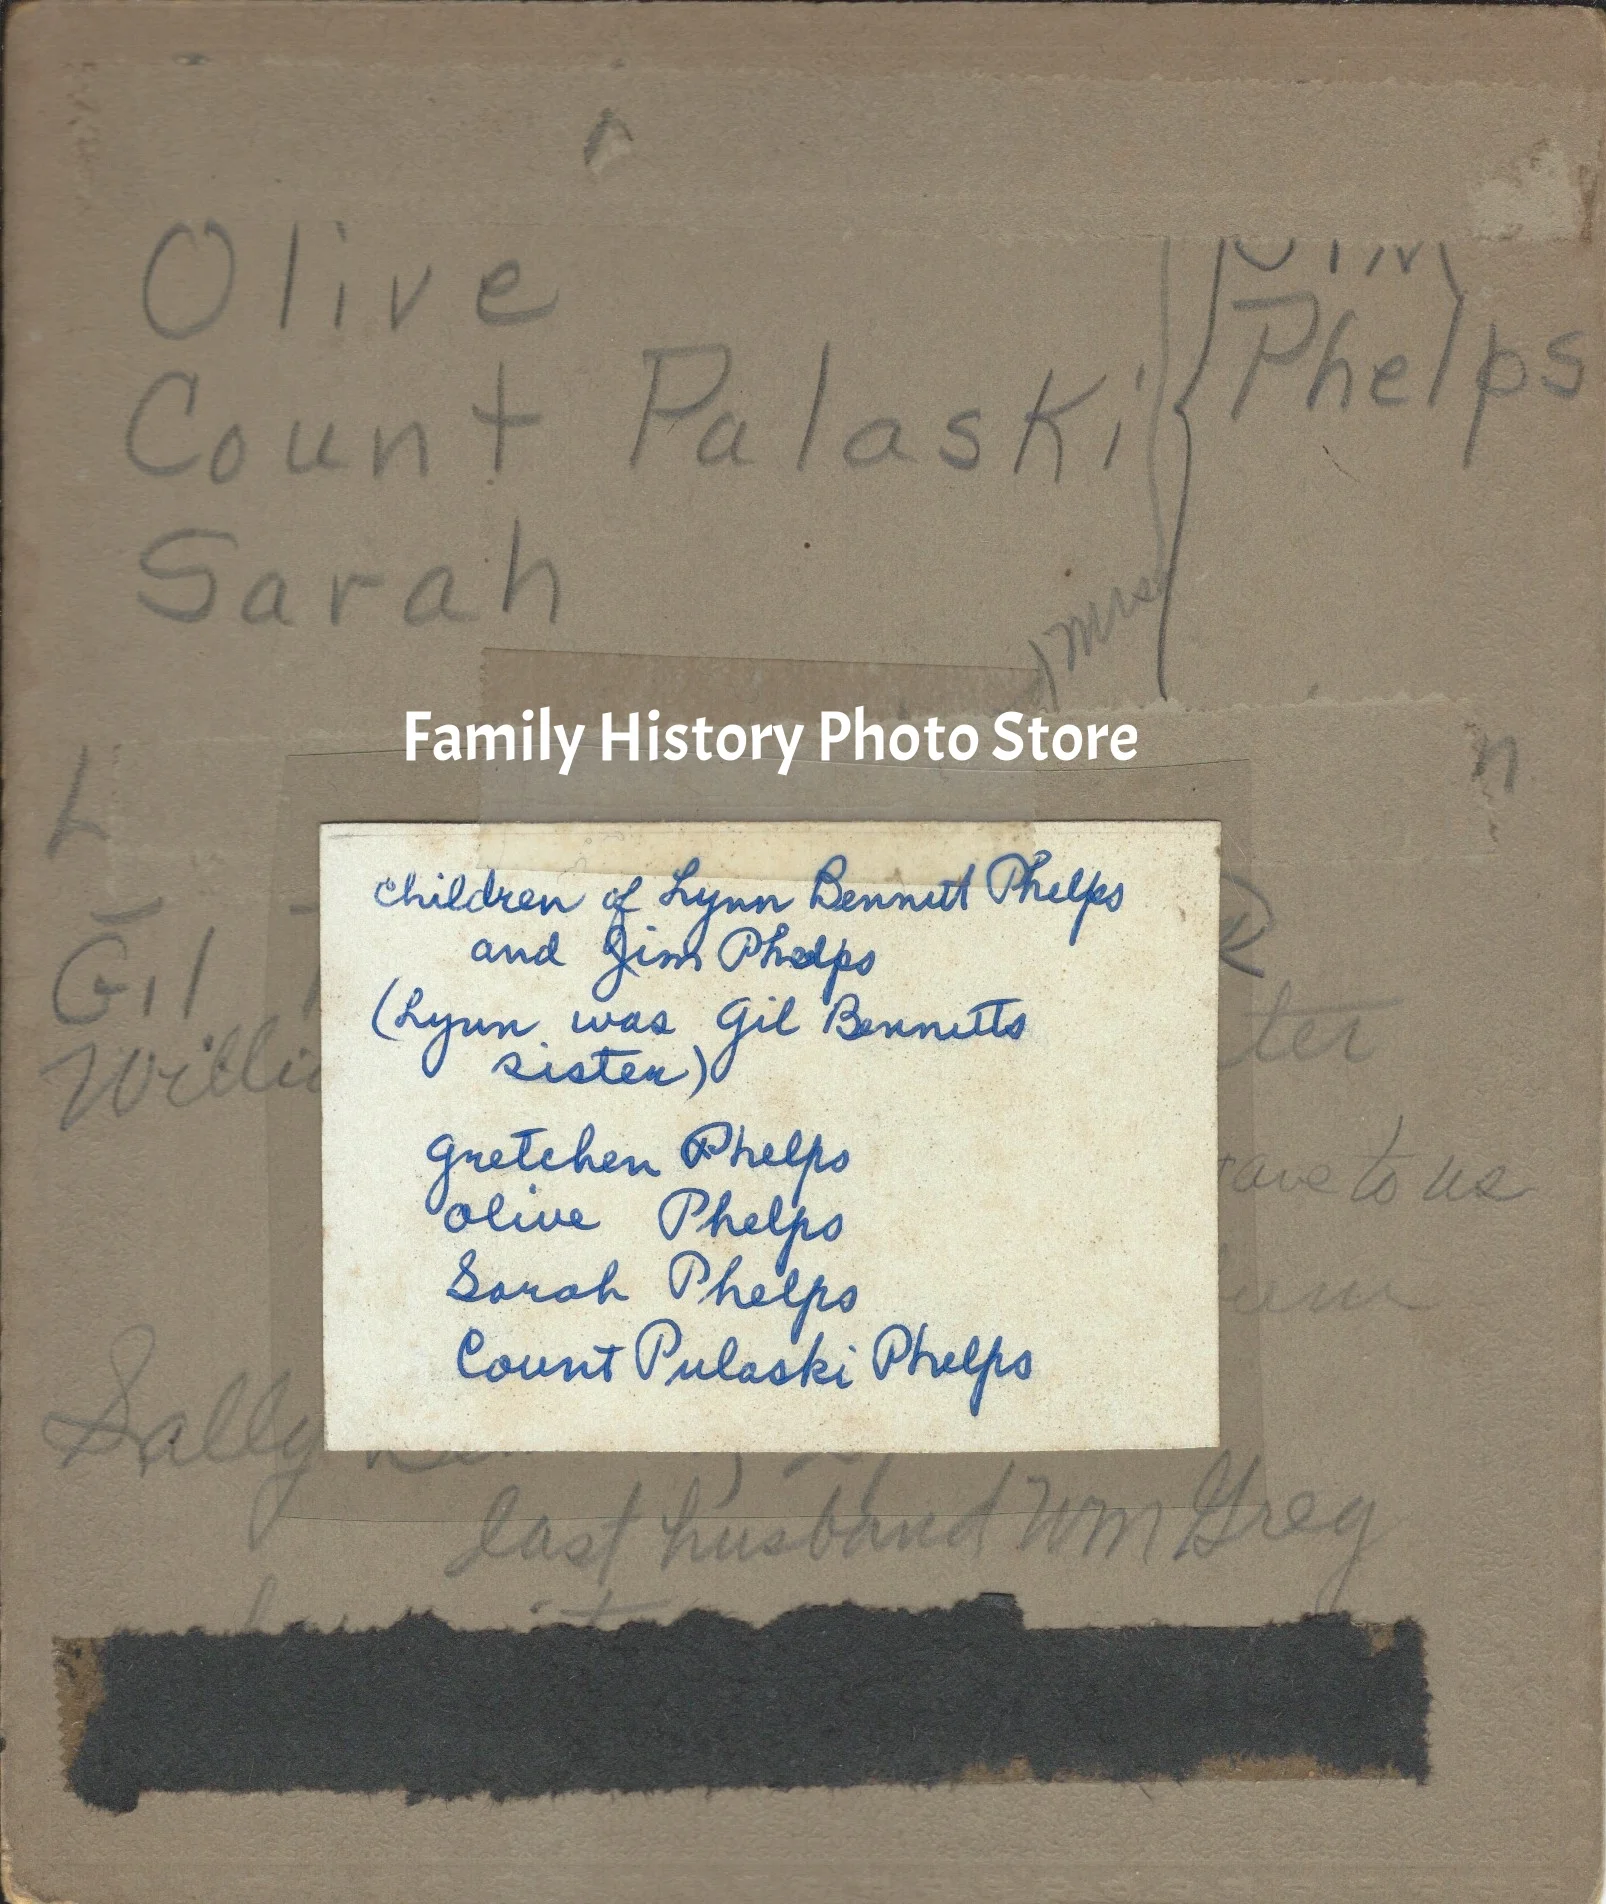 Olive
Count Palaski
Phelps
Sarah
Mrs
Family History Photo Store
L
n
children of Lynn Bennett Phelps
and Jim Phelps
(Lynn was Gil Bennetts
sister)
Gretchen Phelps
Olive Phelps
Sarah Phelps
Count Pulaski Phelps
Gil
to us
Sally
last husband Wm Greg